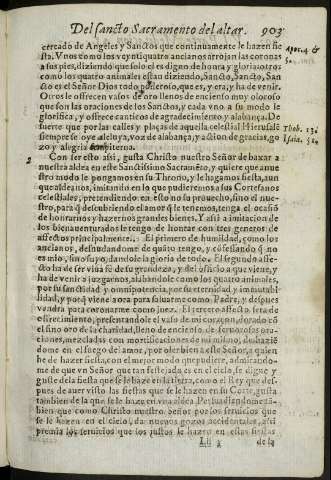 Del sancto Sacramento del altar. 903
cercado de Angeles y Sanctos que continuamente le hazen fie
sta. Vnos como los veyntiquatro ancianos arrojan las coronas
a sus pies, diziendo que solo el es digno de honra y gloria: otros
como los quatro animales estan diziendo, Sancto, Sancto, San
cto es el Señor Dios todo poderoso, que es, y era, y ha de venir.
Otros le offrecen vasos de oro llenos de encienso muy oloroso
que son las oraciones de los Sanctos, y cada vno a su modo le
glorifica, y offrece canticos de agradecimiento y alabança. De
suerte que por las calles y plaças de aquella celestial Hierusalē
siempre se oye aleluya, voz de alabança, y action de gracias, go
zo y alegria sempiterna.
Apoc. 4 &
Thob. 13.
Isaiæ. 51.
2
Con ser esto assi, gusta Christo nuestro Señor de baxar a
nuestra aldea en este Sanctissimo Sacramēto, y quiere que a nue
stro modo le pongamos en su Throno, y le hagamos fiesta, aun
que aldeanos, imitando en lo que pudieremos a sus Cortesanos
celestiales, pretendiendo en esto no su prouecho, sino el nue-
stro, para q̃ descubriendo el amor q̃ le tenemos, tenga el ocasiō
de honrarnos y hazernos grandes bienes. Y assi a imitacion de
los bienauenturados le tengo de hontar con tres generos de
affectos principalmente. El primero de humildad, como los
ancianos, desnudandome de quāto tengo, y cōfessando q̃ no
es mio, sino suyo, dandole la gloria de todo. El segundo affe-
cto ha de ser
de su grandeza, y del officio a que viene, y
ha de venir a juzgarnos, alabandole como los quatro animales,
por su sanctidad y omnipotencia, por su eternidad y immutabi-
lidad, y porq̃ viene aora para saluarme como Padre, y despues
vendra para coronarme como Iuez. El tercero affecto sera de
offrecimiento, presentandole el vaso de mi coraçon, dorado cō
el fino oro de la charidad, lleno de encienso de feruorosas ora-
ciones, mezcladas con mortificaciones de mi
dome en el fuego del amor, por obe
a este Señor, a quien
he de hazer fiesta, con el mejor modo que pudiere, admirando-
me de que vn Señor que tan festejado es en el cielo, se digne y
guste de la fiesta que se le haze en la tierra, como el Rey que des-
pues de auer visto las fiestas que se le hazen en su Corte, gusta
tambien de la que se le haze en vna aldea. Persuadiendome tā-
bien que como Christo nuestro Señor por los seruicios que
se le hazen en el cielo, da nueuos gozos accidentales, assi
premia los seruicios que los justos le hazen en estas fiestas
Lll 2 de la